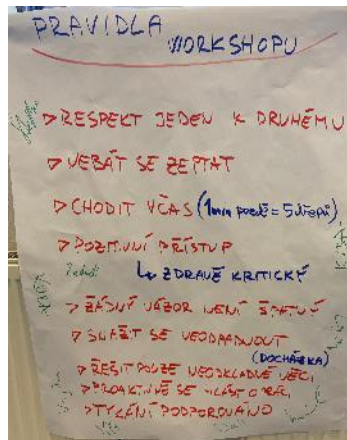 PRAVIDLA
WORKSHOPU
> RESPEKT JEDEN K DRUHÉMU
> NEBÁT SE ZEPTAT
> CHODIT VČAS (1min pozdě = 5 dřepů)
> POZITIVNÍ PŘÍSTUP
↳ ZDRAVĚ KRITICKÝ
> ŽÁDNÝ NÁZOR NENÍ ŠPATNÝ
> SNAŽIT SE NEODPADNOUT
(DOCHÁZKA)
> ŘEŠIT POUZE NEODKLADNÉ VĚCI
> PROAKTIVNĚ SE HLÁSIT O PRÁCI
> TYKÁNÍ PODPOROVÁNO